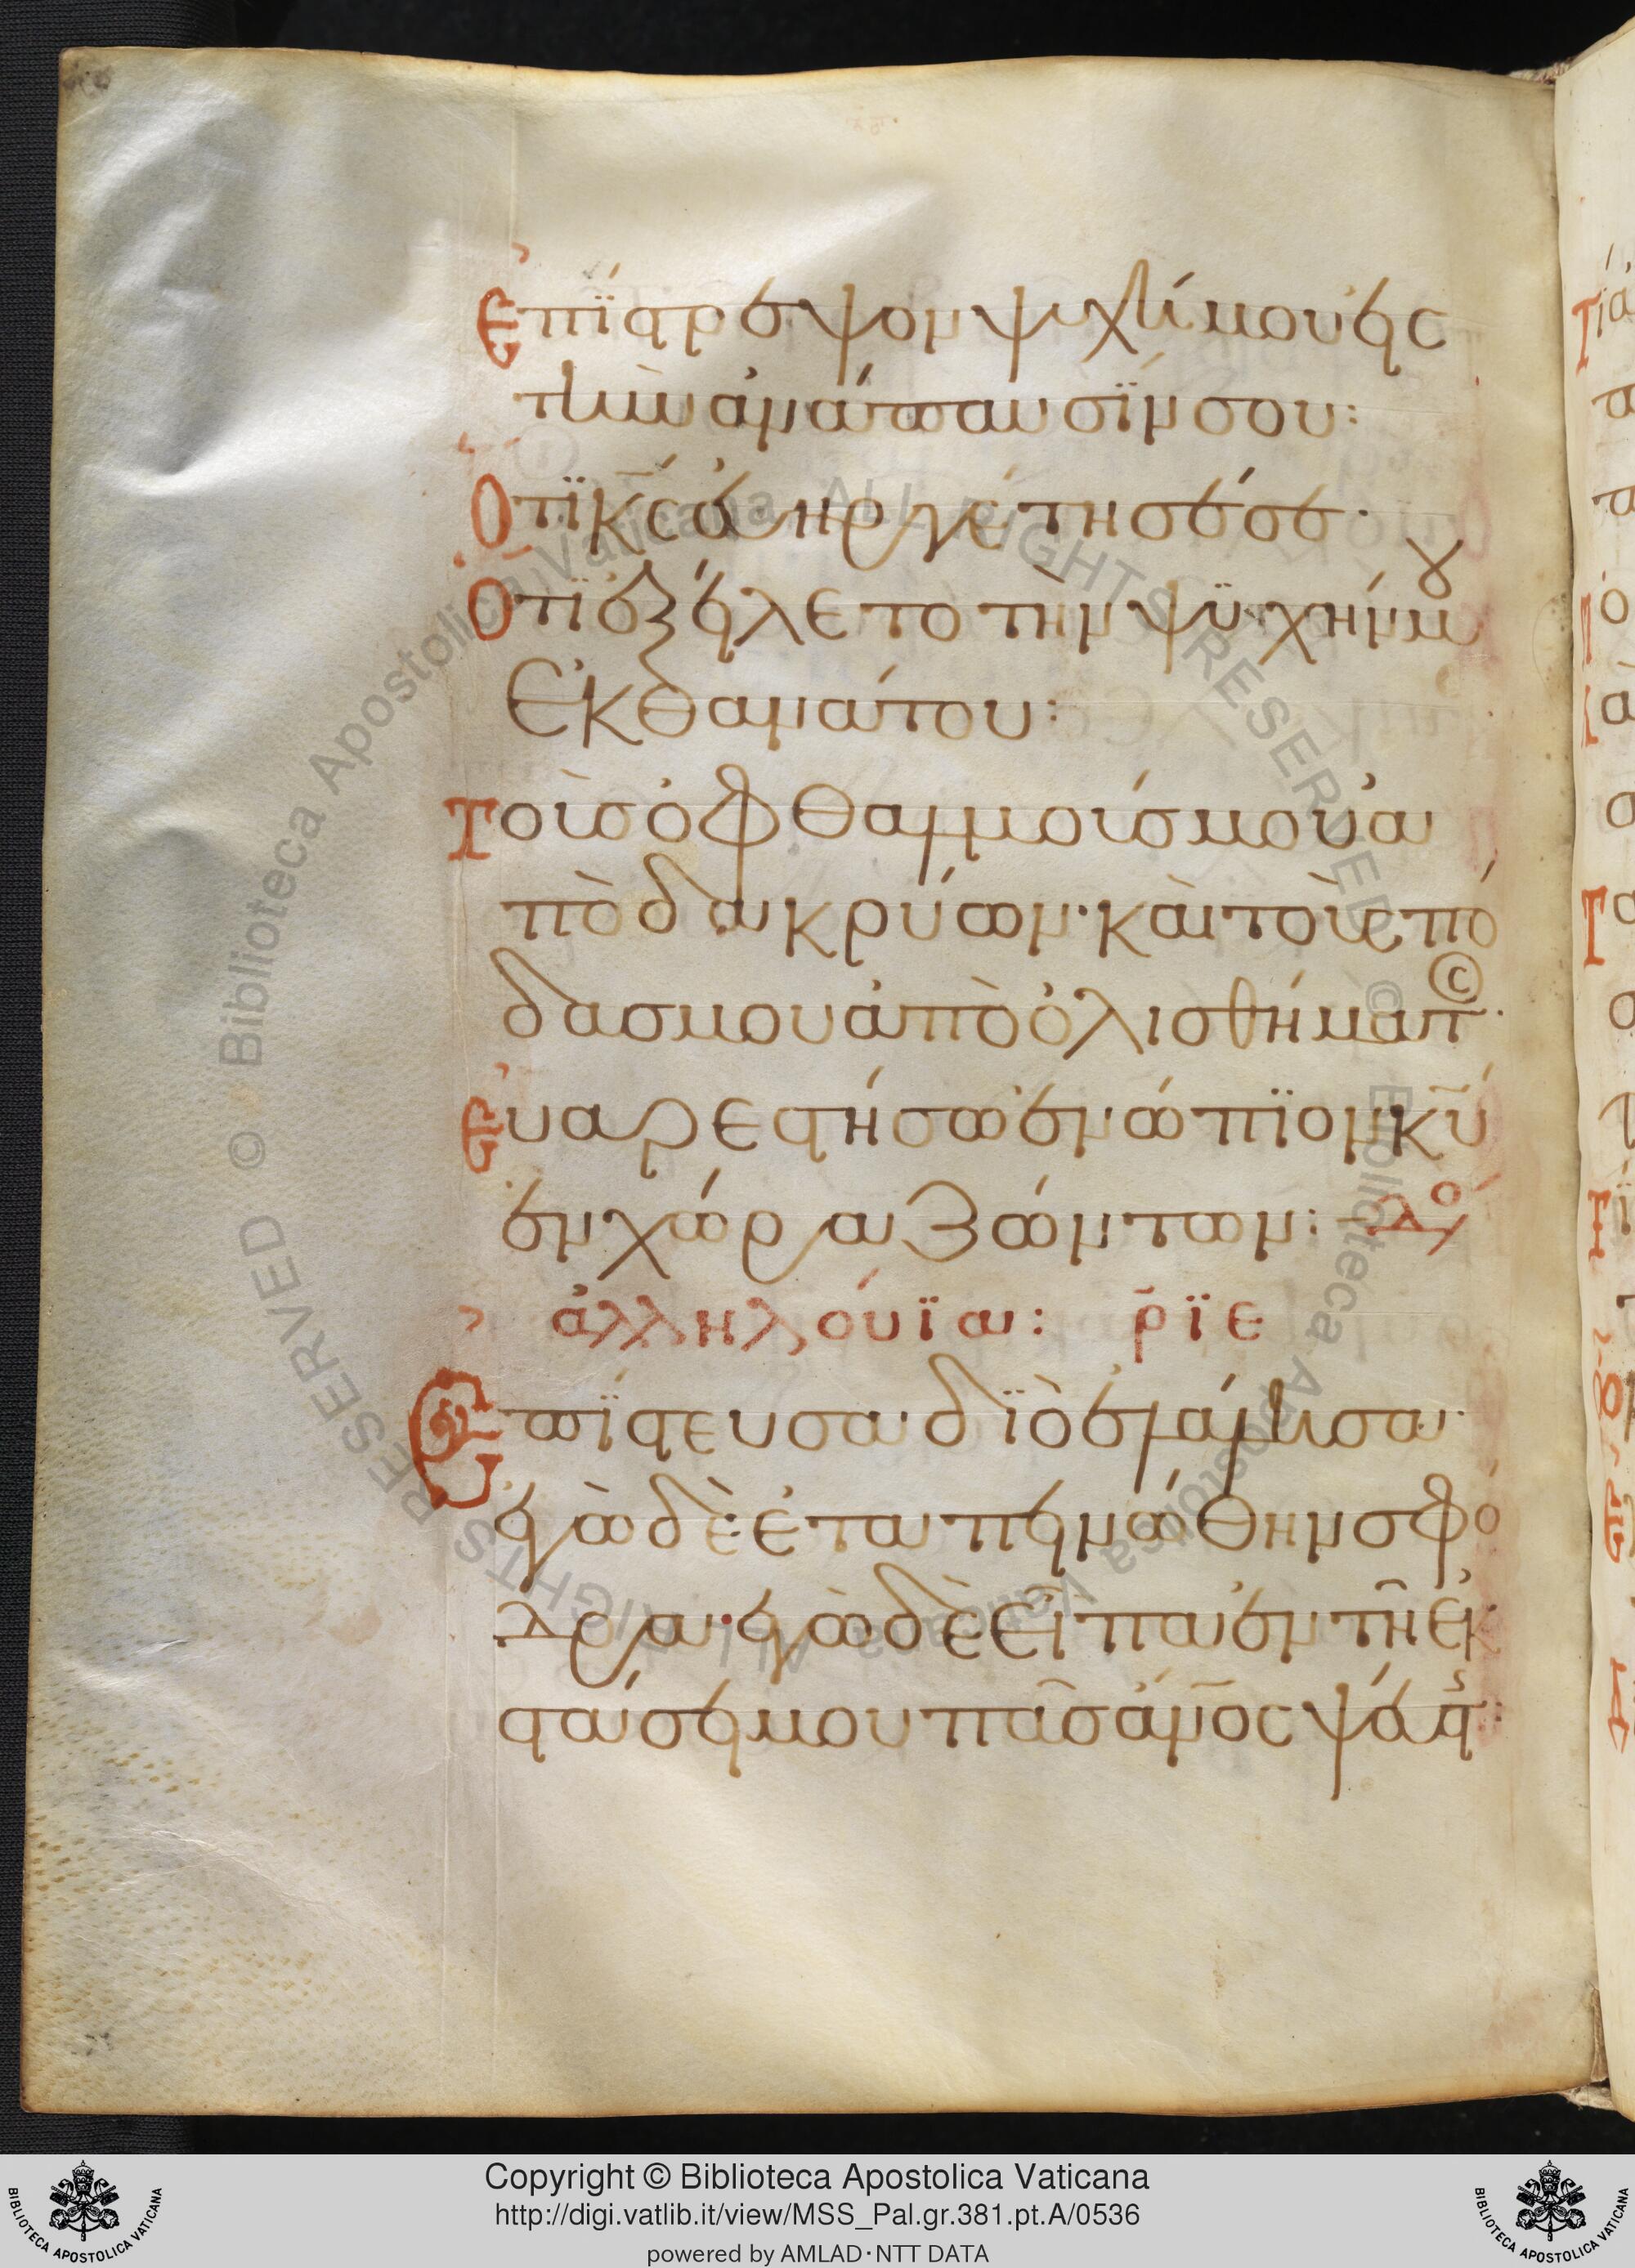 Ἐπίστρεψον ψυχή μου εἰς
τὴν ἀνάπαυσϊν σου:
Ὅτϊ κ̅ς̅ εὐηργέτησέ σε·
Ὅτϊ ἐξείλετο τὴν ψϋχήν μου
ἐκ θανάτου:
Τοὺς ὀφθαλμούς μου ἀ
πὸ δακρύων· καὶ τοὺς πό
δας μου ἀπὸ ὀλισθήματ
Εὐαρεστήσω ἐνώπϊον κ̅υ̅
ἐν χώρα ζώντων: δο
ἀλληλούϊα: ρϊε
Ἐπίστευσα· δϊὸ ἐλάλησα·
ἐγὼ δὲ ἐταπεινώθην σφό
δρα· ἐγὼ δὲ εἶπα ἐν τῆ ἐκ
στάσει μου πᾶς ἄνο̅ς ψεύστ:
Copyright © Biblioteca Apostolica Vaticana
http://digi.vatlib.it/view/MSS_Pal.gr.381.pt.A/0536
powered by AMLAD·NTT DATA
BIBLIOTECA APOSTOLICA VATICANA
BIBLIOTECA APOSTOLICA VATICANA
© Biblioteca Apostolica Vaticana ALL RIGHTS RESERVED